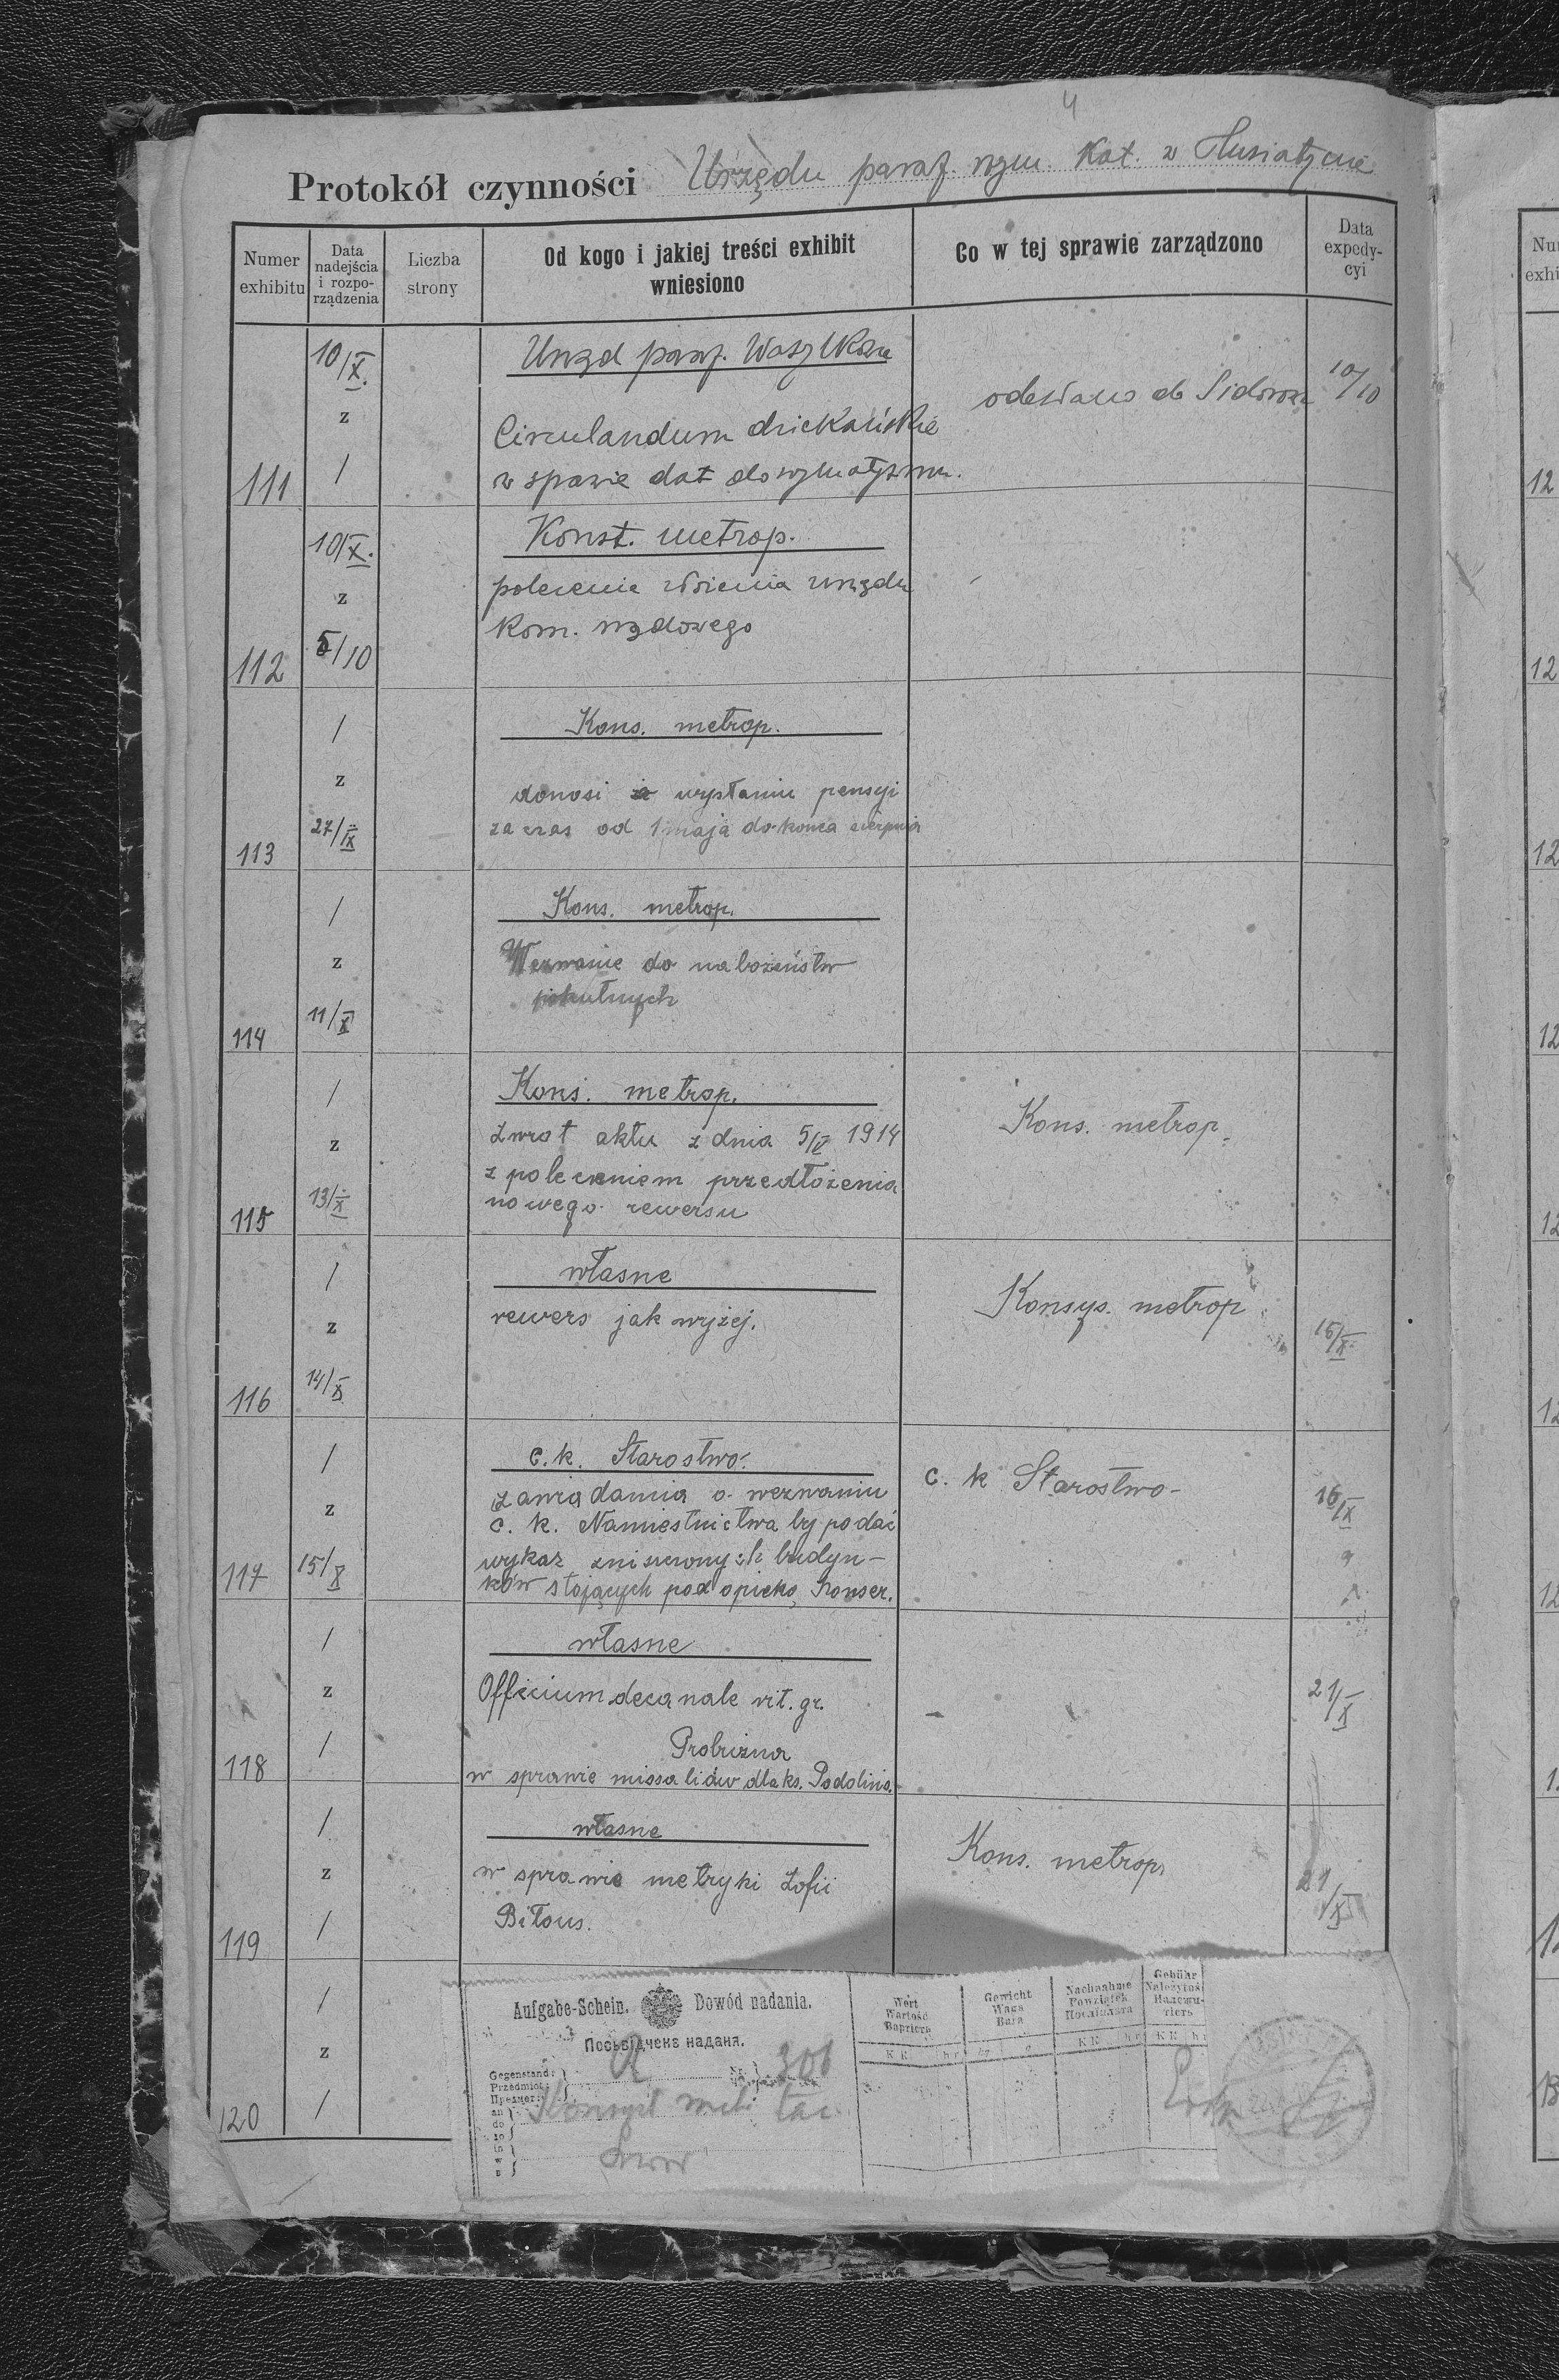 4
Protokół czynności Urzędu paraf. rzym. Kat. w Husiatynie
Numer exhibitu
Data nadejścia i rozpo-rządzenia
Liczba strony
Od kogo i jakiej treści exhibit wniesiono
Co w tej sprawie zarządzono
Data expedy-cyi
10/X.
Urząd paraf.
z
odesłano do
10/10
Circulandum dziekańskie
111
/
w sprawie dat do szematyzmu.
10/X.
Konst. metrop.
z
polecenie urzędu
Kom. rządowego
112
5/10
/
Kons. metrop.
z
donosi o wysłaniu pensyi
27/IX
za czas od 1 maja do końca sierpnia
113
/
Kons. metrop.
z
Wezwanie do nabożeństw
pokutnych
114
11/X
/
Kons. metrop.
Kons. metrop.
zwrot aktu z dnia 5/V 1914
z
z poleceniem przedłożenia
115
13/X
nowego rewersu
/
własne
Konsys. metrop
z
rewers jak wyżej.
15/X
116
14/X
/
c. k. Starostwo.
c. k Starostwo-
zawiadamia o wezwaniu
z
c. k. Namiestnictwa by podać
16/X
wykaz zniszczonych budyn-
117
15/X
ków stojących pod opieką Konser.
/
własne
z
Officium decanale rit. gr.
21/X
Probużna
118
/
w sprawie missaliów dla ks.
/
własne
Kons. metrop.
z
w sprawie metryki Zofii
21/X
Biłous.
119
/
/
z
120
/
Aufgabe-Schein. Dowód nadania.
Посьвідченє наданя.
Gegenstand:
Przedmiot:
Предмет:
R
Nr.
306
an
do
до
in
w
в
Lwów
Wert
Wartość
Вартість
Gewicht
Waga
Вага
Nachnahme
Powziątek
Gebühr
Należytość
K K h r
kg g
K K h r
K K h r
12
12
12
12
12
12
12